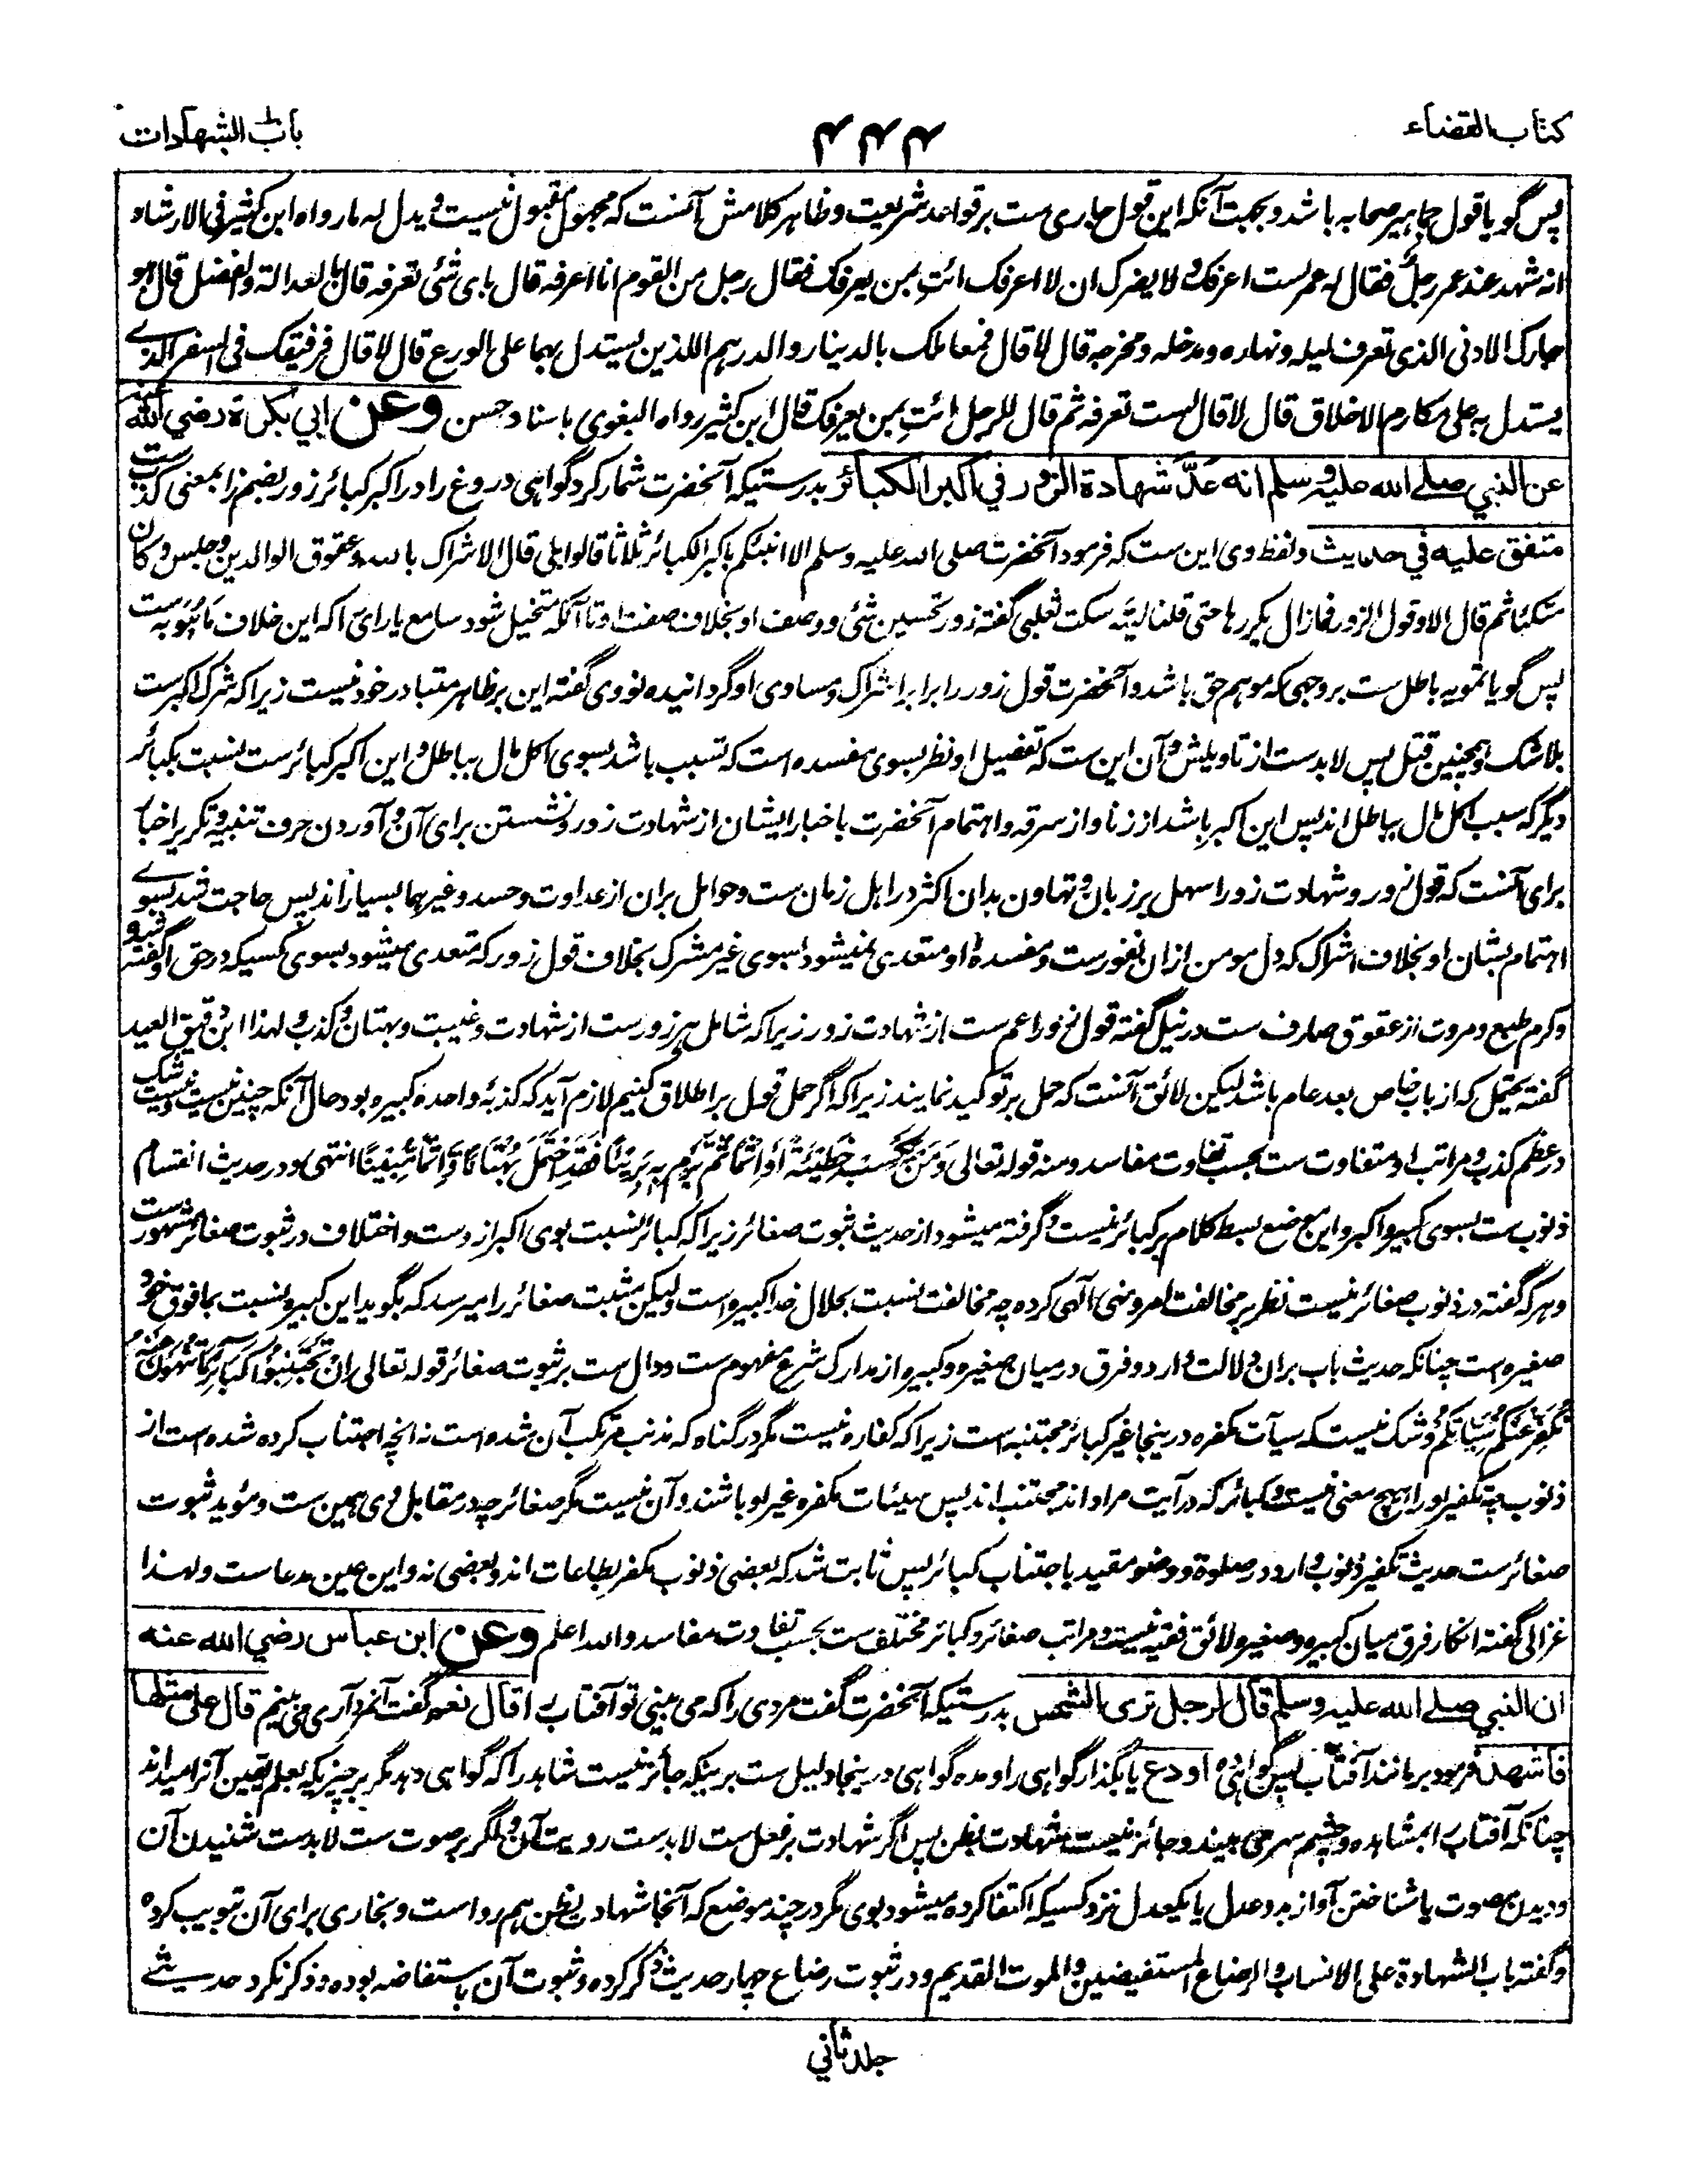 کتاب القضاء
۴۴۴
باب الشهادات
پس گویا قول جماهیر صحابه باشد و بجهت آنکه این قول جاری ست بر قواعد شریعت و ظاهر کلامش آنست که مجهول مقبول نیست و یدل له ما رواه ابن کثیر فی الارشاد
انه شهد عند عمر رجل فقال له عمر لست اعرفک و لا یضرک ان لا اعرفک ائت بمن یعرفک فقال رجل من القوم انا اعرفه قال بای شئ تعرفه قال بالعدالة و الفضل قال هو
جارک الادنی الذی تعرف لیله و نهاره و مدخله و مخرجه قال لا قال فمعاملک بالدینار و الدرهم اللذین یستدل بهما علی الورع قال لا قال فرفیقک فی السفر الذے
یستدل به علی مکارم الاخلاق قال لا قال لست تعرفه ثم قال للرجل ائتِ بمن یعرفک قال ابن کثیر رواه البغوی باسناد حسن وعن ابي بكرة رضي الله عنه
عن النبي صلے الله عليه وسلم انه عدَّ شهادة الزور في اكبر الكبائر بدرستیکه آنحضرت شمار کرد گواهی دروغ را در اکبر کبائر زور بضم زا بمعنی کذب ست
متفق عليه في حديث و لفظ وی این ست که فرمود آنحضرت صلی الله علیه وسلم الا انبئکم باکبر الکبائر ثلاثا قالوا بلی قال الاشراک بالله و عقوق الوالدین و جلس و کان
متکئا ثم قال الا و قول الزور فما زال یکررها حتی قلنا لیته سکت ثعلبی گفته زور تحسین شئ و وصف او بخلاف صفت او تا آنکه متخیل شود سامع یا رائ را که این خلاف ما هو به ست
پس گویا تمویه باطل ست بر وجهی که موهم حق باشد و آنحضرت قول زور را برابر اشراک و مساوی او گردانیده نووی گفته این بر ظاهر متبادر خود نیست زیرا که شرک اکبر ست
بلا شک و همچنین قتل پس لابد ست از تاویلش و آن این ست که تفضیل او نظر بسوی مفسده است که تسبب باشد بسوی اکل مال بباطل و این اکبر کبائر ست نسبت بکبائر
دیگر که سبب اکل مال بباطل اند پس این اکبر باشد از زنا و از سرقه و اهتمام آنحضرت باخبار ایشان از شهادت زور و نشستن برای آن و آوردن حرف تنبیه و تکریر اخبار
برای آنست که قول زور و شهادت زور اسهل بر زبان و تهاون بدان اکثر در اهل زمان ست و حوامل بران از عداوت و حسد و غیرهما بسیار اند پس حاجت شد بسوے
اهتمام بشان او بخلاف اشراک که دل مومن ازان نفور ست و مفسدۀ او متعدی نمیشود بسوی غیر مشرک بخلاف قول زور که متعدی میشود بسوی کسیکه در حق او گفته شد و
و کرم طبع و مروت از عقوق صارف ست در نیل گفته قول زور اعم ست از شهادت زور زیرا که شامل هر زور ست از شهادت و غیبت و بهتان و کذب و لهذا ابن دقیق العید
گفته یحتمل که از باب خاص بعد عام باشد لیکن لائق آنست که حمل بر توکید نمایند زیرا که اگر حمل قول بر اطلاق کنیم لازم آید که کذبۀ واحده کبیره بود حال آنکه چنین نیست و نیست شک
در عظم کذب و مراتب او متفاوت ست بحسب تفاوت مفاسد و منه قوله تعالی وَمَن يَكْسِبْ خَطِيئَةً أَوْ إِثْمًا ثُمَّ يَرْمِ بِهِ بَرِيئًا فَقَدِ احْتَمَلَ بُهْتَانًا وَإِثْمًا مُّبِينًا انتهی و در حدیث انقسام
ذنوب ست بسوی کبیر و اکبر و این موضع بسط کلام بر کبائر نیست و گرفته میشود از حدیث ثبوت صغائر زیرا که کبائر نسبت بوی اکبر ازوست و اختلاف در ثبوت صغائر مشهور ست
و هر که گفته در ذنوب صغائر نیست نظر بر مخالفت امر و نهی الٰهی کرده چه مخالفت نسبت بجلال خدا کبیره است و لیکن مثبت صغائر را میرسد که بگوید این کبیره نسبت بما فوق خود
صغیره ست چنانکه حدیث باب بران دلالت دارد و فرق در میان صغیره و کبیره از مدارک شرع مفهوم ست و دال ست بر ثبوت صغائر قوله تعالی إِن تَجْتَنِبُوا كَبَائِرَ مَا تُنْهَوْنَ عَنْهُ
نُكَفِّرْ عَنكُمْ سَيِّئَاتِكُمْ و شک نیست که سیآت مکفره درینجا غیر کبائر مجتنبه ست زیرا که کفاره نیست مگر در گناه که مذنب مرتکب آن شده است نه انچه اجتناب کرده شده است از
ذنوب چه تکفیر او را هیچ معنی نیست و کبائر که در آیت مراد اند مجتنب اند پس سیئات مکفره غیر او باشند و آن نیست مگر صغائر چه در مقابل وی همین ست و مؤید ثبوت
صغائر ست حدیث تکفیر ذنوب وارد در صلوة و وضو مقید باجتناب کبائر پس ثابت شد که بعضی ذنوب مکفر بطاعات اند و بعضی نه و این عین مدعاست و لهذا
غزالی گفته انکار فرق میان کبیره و صغیره لائق فقیه نیست و مراتب صغائر و کبائر مختلف ست بحسب تفاوت مفاسد و الله اعلم وعن ابن عباس رضي الله عنه
ان النبي صلے الله عليه وسلم قال لرجل ترى الشمس بدرستیکه آنحضرت گفت مردی را که می بینی تو آفتاب را قال نعم گفت آنمرد آری می بینم قال على مثلها
فاشهد فرمود بر مانند آفتاب پس گواهی ده او دع یا بگذار گواهی را و مده گواهی درینجا دلیل ست برینکه جائز نیست شاهد را که گواهی دهد مگر بر چیزیکه بعلم یقین آنرا میداند
چنانکه آفتاب را بمشاهده و چشم سر می بیند و جائز نیست شهادت بظن پس اگر شهادت بر فعل ست لابدست رویت آن و اگر بر صوت ست لابدست شنیدن آن
و دیدن مصوت یا شناختن آواز بدو عدل یا یکعدل نزد کسیکه اکتفا کرده میشود بوی مگر در چند موضع که آنجا شهادت بظن هم رواست و بخاری برای آن تبویب کرده
و گفته باب الشهادة علی الانساب و الرضاع المستفیضین و الموت القدیم و در ثبوت رضاع چهار حدیث ذکر کرده و ثبوت آن باستفاضه بوده و ذکر نکرد حدیثے
جلد ثاني